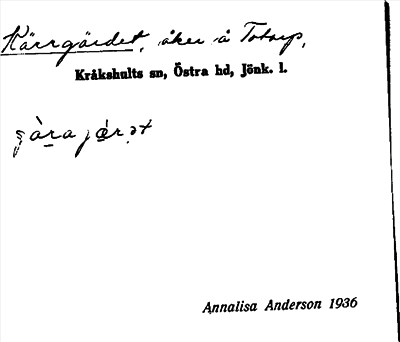 Kärrgärdet, åker å Totarp,
Kråkshults sn, Östra hd, Jönk. l.
Annalisa Anderson 1936